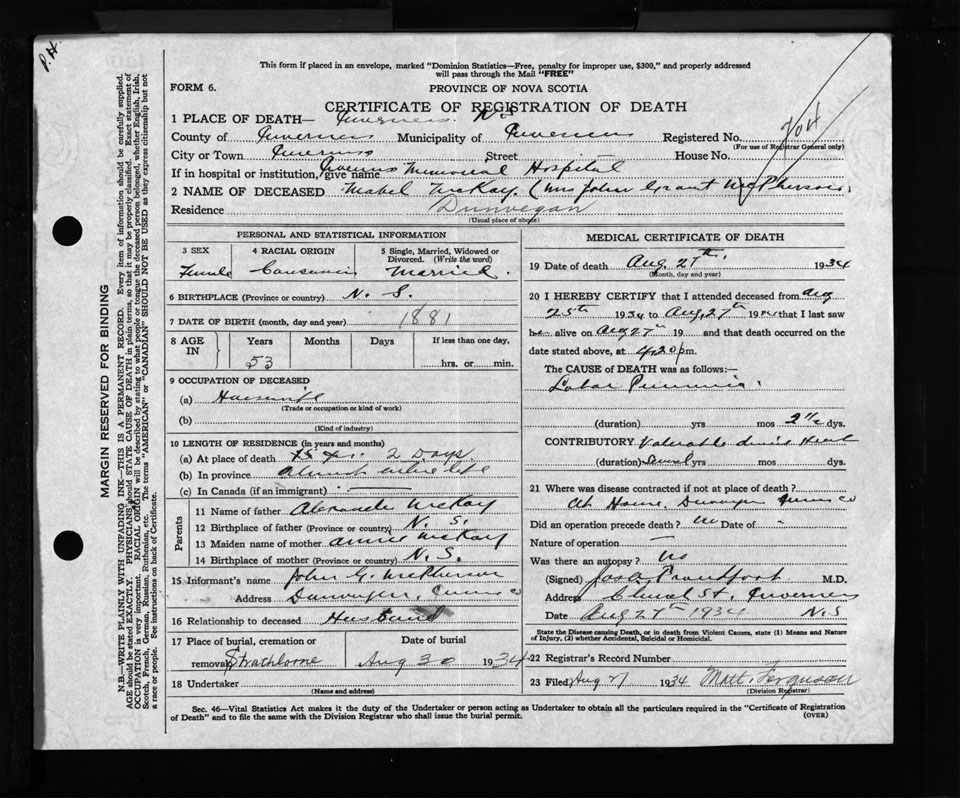 P. H.
This form if placed in an envelope, marked "Dominion Statistics—Free, penalty for improper use, $300," and properly addressed
will pass through the Mail "FREE"
FORM 6.
PROVINCE OF NOVA SCOTIA
CERTIFICATE OF REGISTRATION OF DEATH
1 PLACE OF DEATH— Inverness. N.S.
County of Inverness Municipality of Inverness Registered No. 704
(For use of Registrar General only)
City or Town Inverness Street House No.
If in hospital or institution, give name Memorial Hospital
2 NAME OF DECEASED Mabel McKay. (Mrs John Grant McPherson.
Residence Dunvegan
(Usual place of abode)
PERSONAL AND STATISTICAL INFORMATION
3 SEX 4 RACIAL ORIGIN 5 Single, Married, Widowed or
Divorced. (Write the word)
Female Married.
6 BIRTHPLACE (Province or country) N. S.
7 DATE OF BIRTH (month, day and year) 1881
8 AGE IN Years Months Days If less than one day,
53 hrs. or min.
9 OCCUPATION OF DECEASED
(a) Housewife
(Trade or occupation or kind of work)
(b)
(Kind of industry)
10 LENGTH OF RESIDENCE (in years and months)
(a) At place of death 2 Days.
(b) In province almost entire life
(c) In Canada (if an immigrant) —
Parents
11 Name of father McKay
12 Birthplace of father (Province or country) N. S.
13 Maiden name of mother Annie McKay
14 Birthplace of mother (Province or country) N. S.
15 Informant's name John G. McPherson
Address Dunvegan,
16 Relationship to deceased Husband
17 Place of burial, cremation or Date of burial
removal Strathlorne Aug 30 1934
18 Undertaker
(Name and address)
MEDICAL CERTIFICATE OF DEATH
19 Date of death Aug. 27th. 1934
(Month, day and year)
20 I HEREBY CERTIFY that I attended deceased from Aug
25th 1934 to Aug. 27th 1934 that I last saw
h alive on Aug 27th 19 and that death occurred on
date stated above, at 4.20 pm.
The CAUSE of DEATH was as follows:—
Lobar Pneumonia.
(duration) yrs mos 2½ dys.
CONTRIBUTORY Heart
(duration) Several yrs mos dys.
21 Where was disease contracted if not at place of death?
At Home, Dunvegan
Did an operation precede death? No Date of -
Nature of operation —
Was there an autopsy? No
(Signed) Proudfoot M.D.
Address St. Inverness
Date Aug 27th 1934 N.S
State the Disease causing Death, or in death from Violent Causes, state (1) Means and Nature
of Injury, (2) whether Accidental, Suicidal or Homicidal.
22 Registrar's Record Number
23 Filed Aug 27 1934 Matt. Ferguson
(Division Registrar)
Sec. 46—Vital Statistics Act makes it the duty of the Undertaker or person acting as Undertaker to obtain all the particulars required in the "Certificate of Registration
of Death" and to file the same with the Division Registrar who shall issue the burial permit.
(OVER)
MARGIN RESERVED FOR BINDING
N.B.—WRITE PLAINLY WITH UNFADING INK—THIS IS A PERMANENT RECORD. Every item of information should be carefully supplied.
AGE should be stated EXACTLY. PHYSICIANS should STATE CAUSE OF DEATH in plain terms, so that it may be properly classified. Exact statement of
OCCUPATION is very important. RACIAL ORIGIN will be described by stating to what people or tongue the deceased person belonged, whether English, Irish,
Scotch, French, German, Russian, Ruthenian, etc. The terms "AMERICAN" or "CANADIAN" SHOULD NOT BE USED as they express citizenship but not
a race or people. See instructions on back of Certificate.